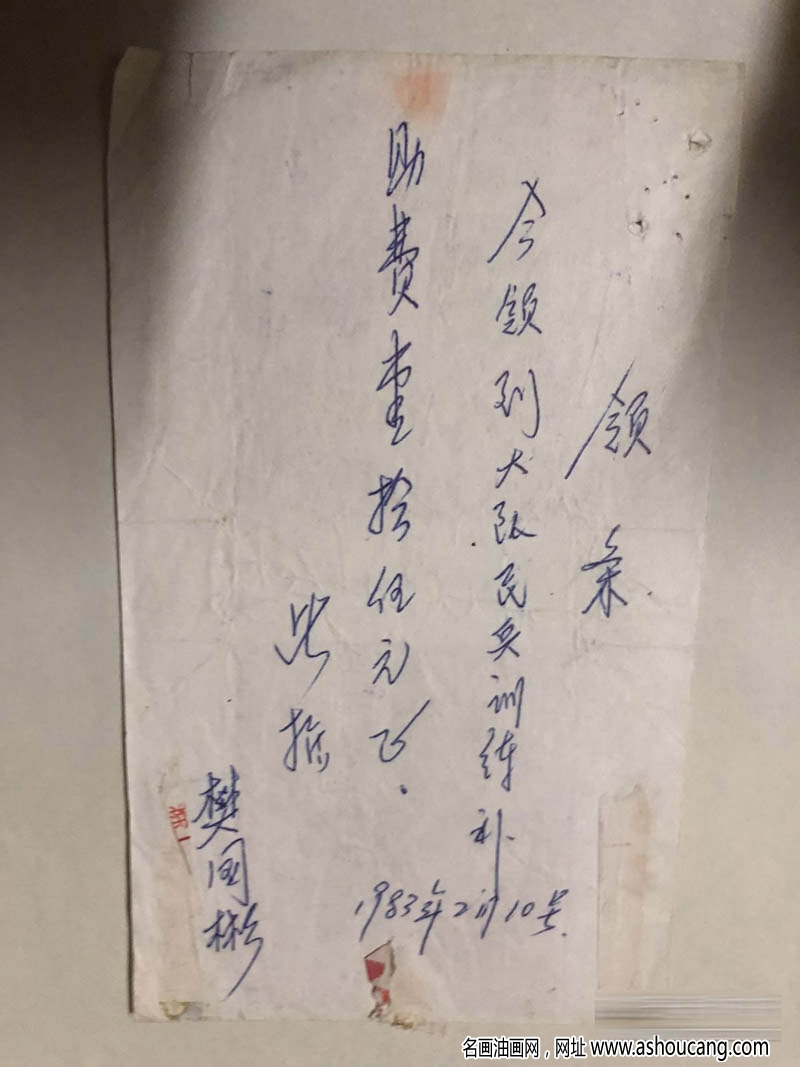 领条
今领到大队民兵训练补
助费壹拾伍元正.
此据
樊国彬
1983年2月10号.
名画油画网，网址 www.ashoucang.com